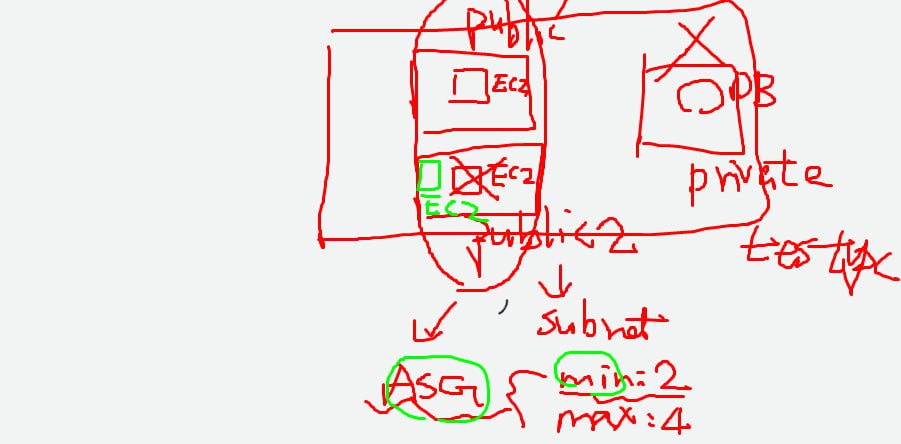 public
EC2
DB
EC2
EC2
private
public2
testvpc
subnet
ASG
min=2
max:4